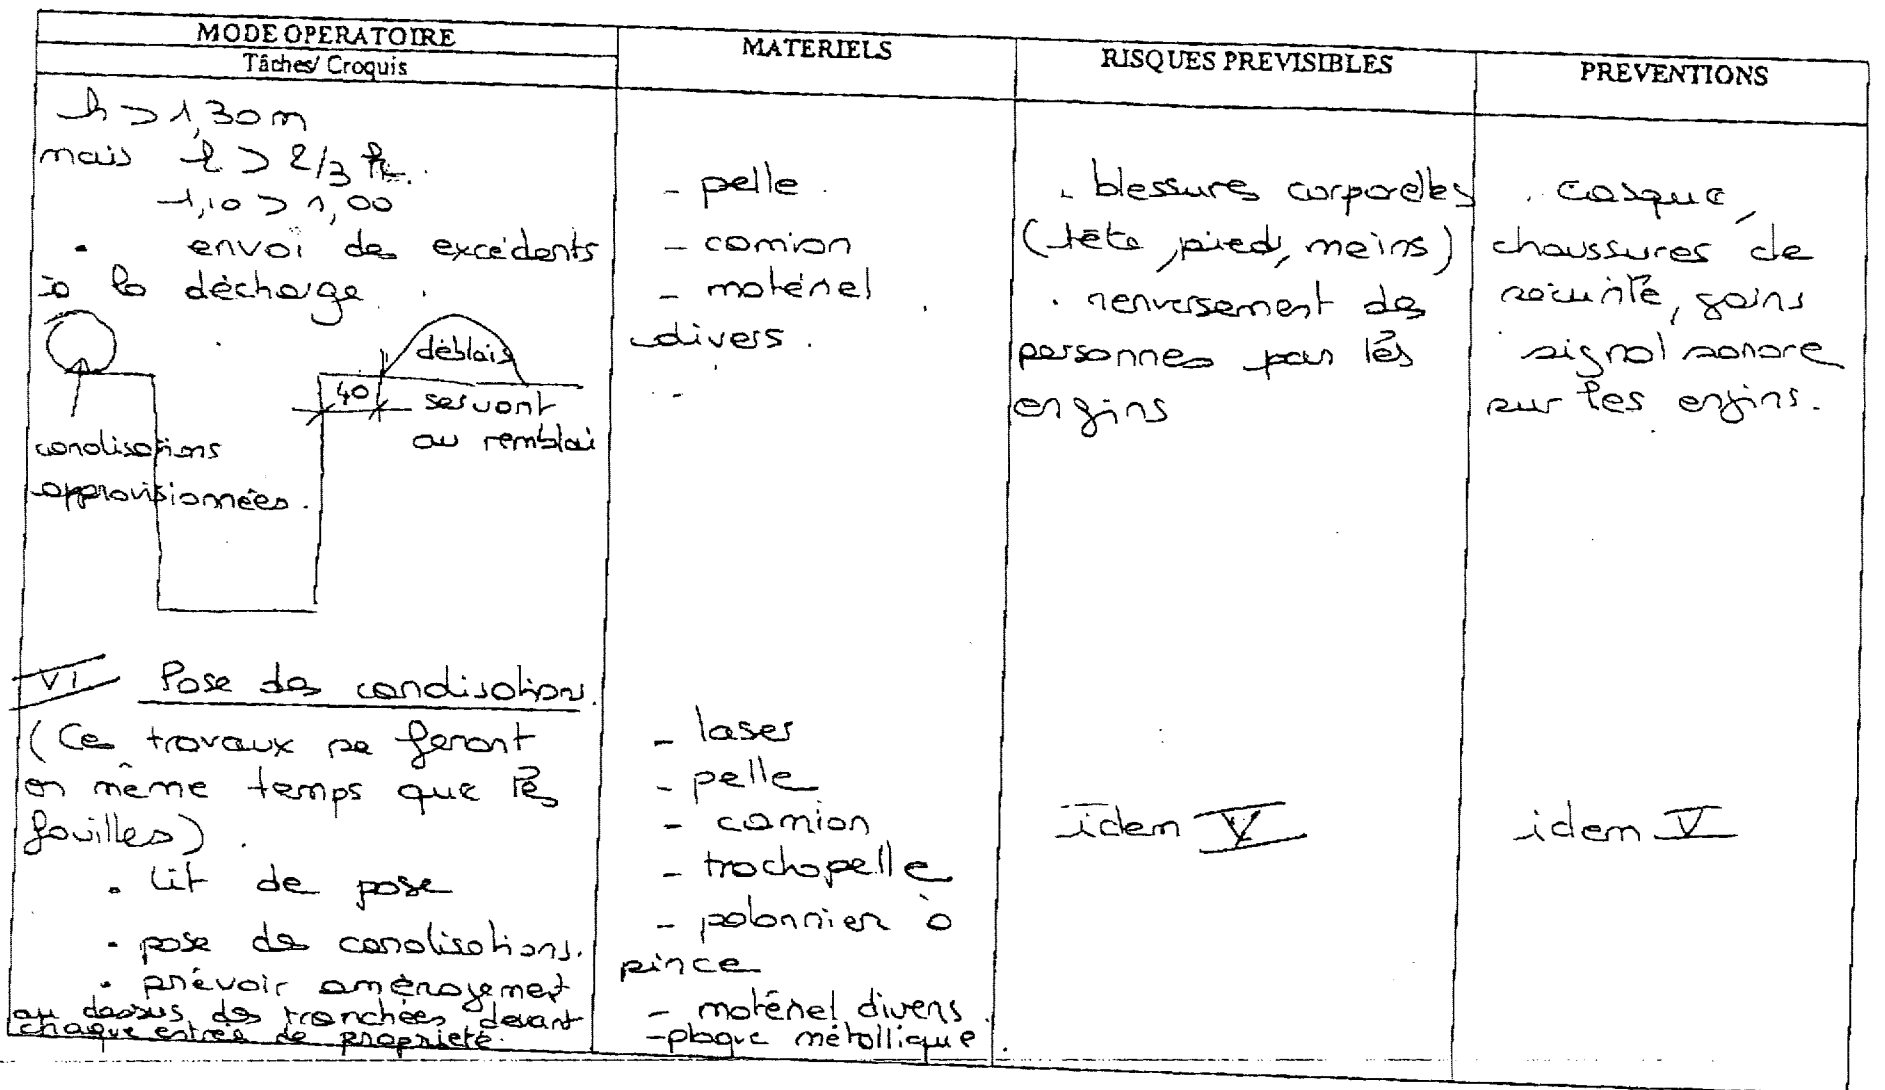 MODE OPERATOIRE
Tâches/ Croquis
MATERIELS
RISQUES PREVISIBLES
PREVENTIONS
h > 1,30 m
mais l > 2/3 h.
1,10 > 1,00
. envoi des excédents
à la décharge.
déblais
40
servant
au remblai
canalisations
approvisionnées.
- pelle.
- camion
- matériel
divers.
. blessures corporelles
(tête, pied, mains)
. renversement des
personnes par les
engins
. casque,
chaussures de
sécurité, gains
signal sonore
sur les engins.
VI Pose des canalisations.
(Ces travaux se feront
en même temps que les
fouilles).
. lit de pose
. pose des canalisations.
. prévoir aménagement
au dessus des tranchées devant
chaque entrée de propriété.
- laser
- pelle
- camion
- trachopelle
- palonnier à
pince
- matériel divers.
- plaque métallique.
idem V
idem V